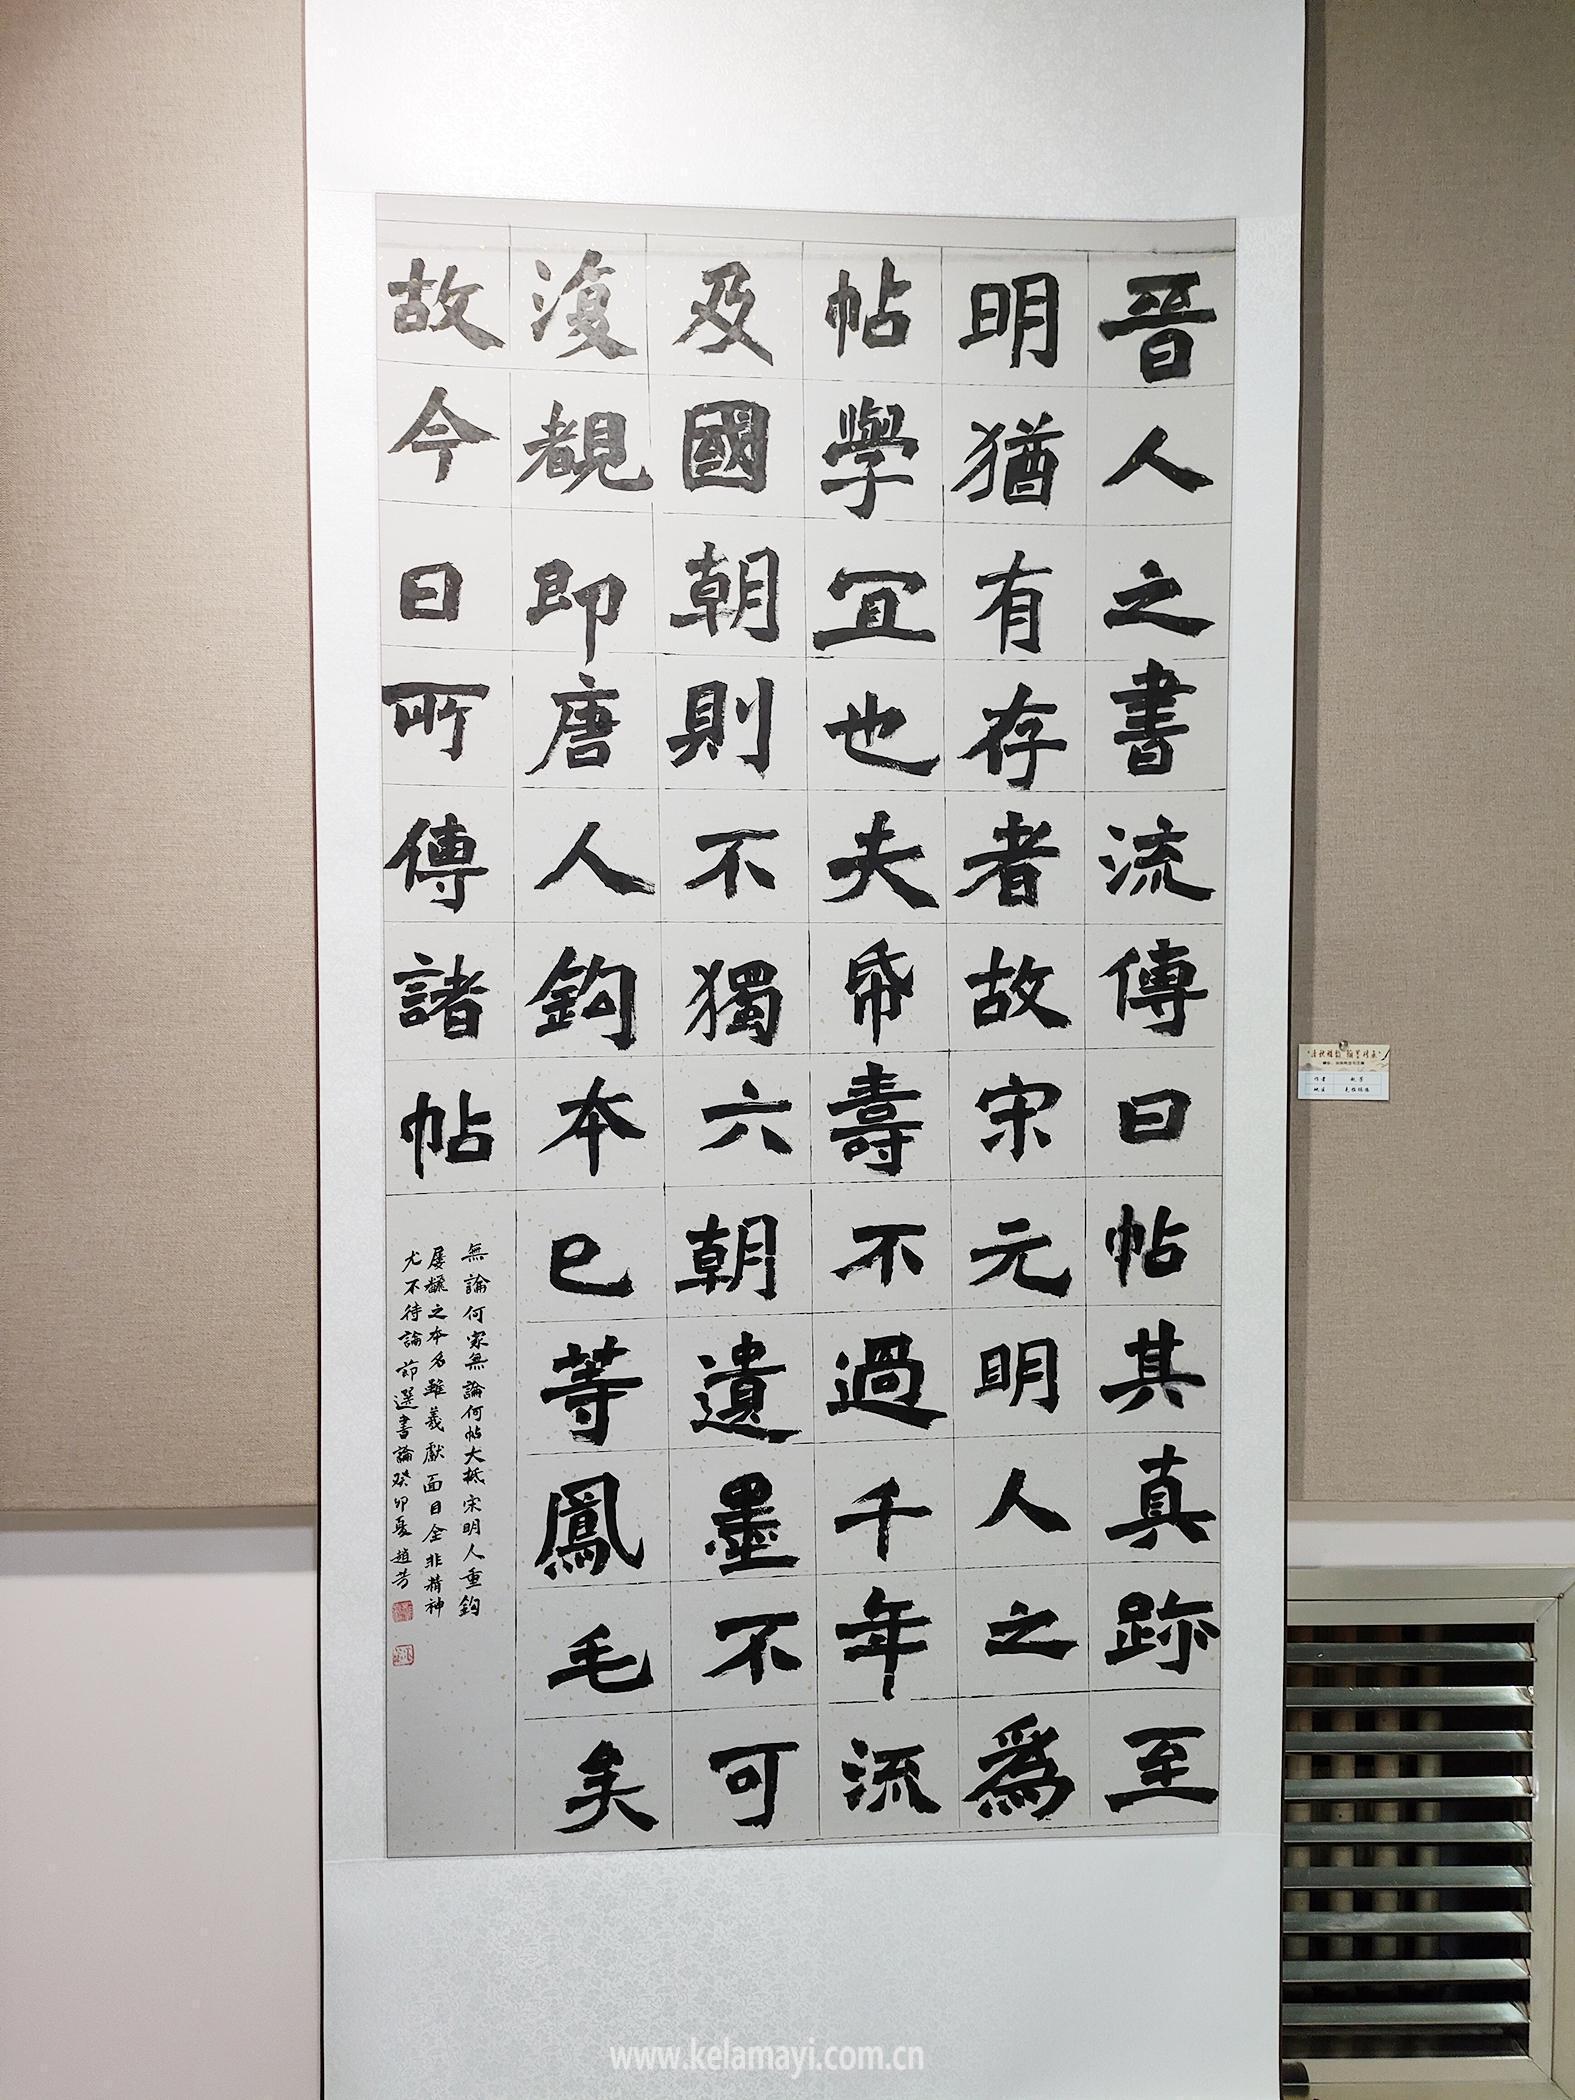 晉人之書流傳曰帖其真跡至
明猶有存者故宋元明人之為
帖學宜也夫帋壽不過千年流
及國朝則不獨六朝遺墨不可
復覩即唐人鈎本已等鳳毛矣
故今日所傳諸帖
無論何家無論何帖大抵宋明人重鈎
屢翻之本名雖羲獻面目全非精神
尤不待論節選書論癸卯夏趙芳
作者 趙芳
www.kelamayi.com.cn